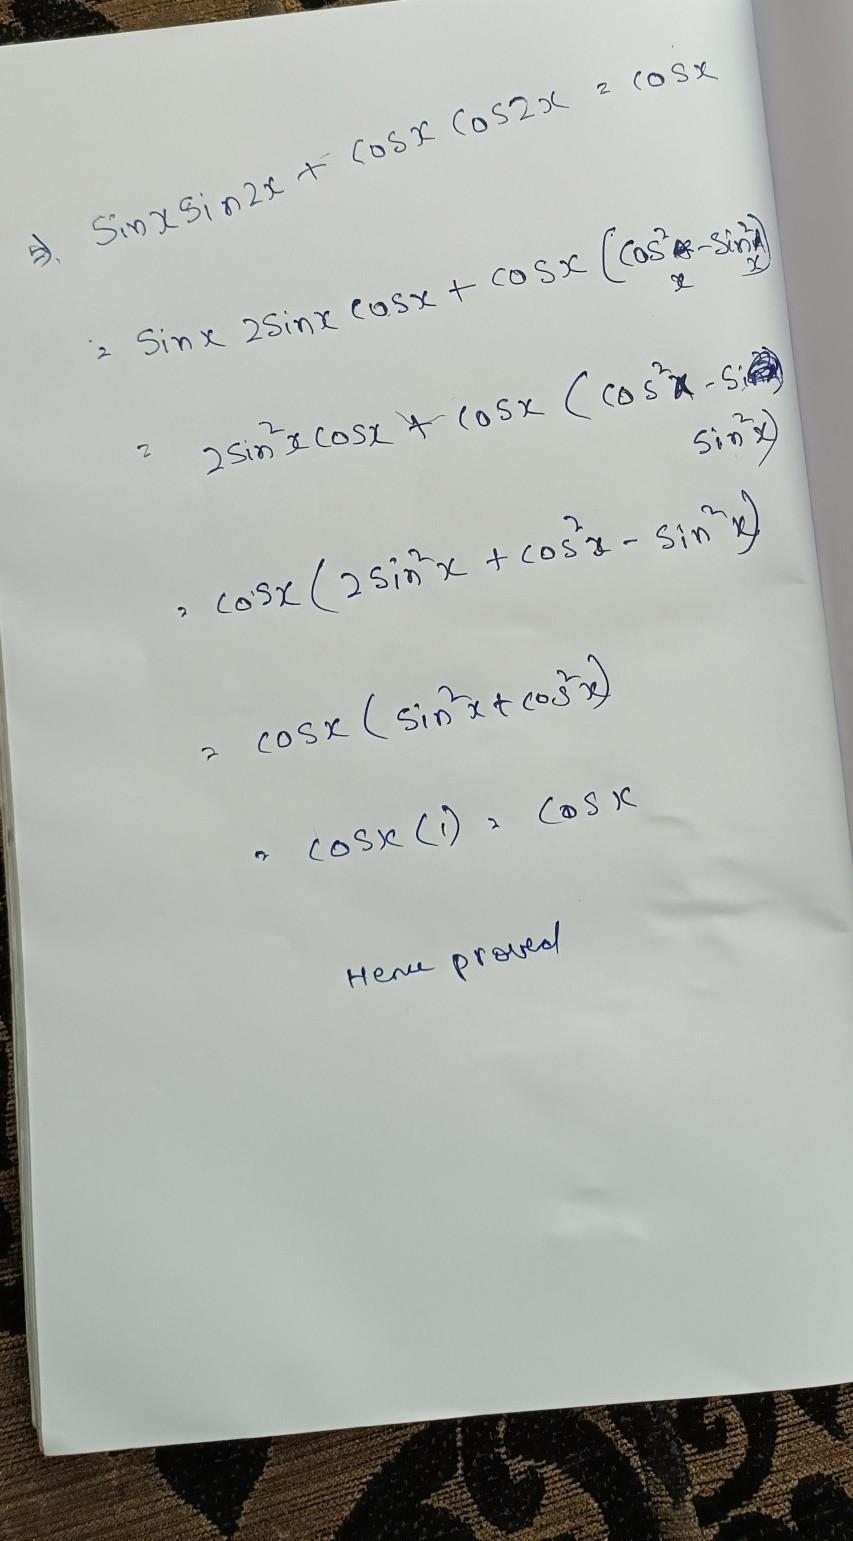 5). sinx sin2x + cosx cos2x = cosx
= sinx 2sinx cosx + cosx (cos²x - sin²x)
= 2sin²x cosx + cosx (cos²x -
sin²x)
= cosx (2sin²x + cos²x - sin²x)
= cosx (sin²x + cos²x)
= cosx (1) = cosx
Hence proved